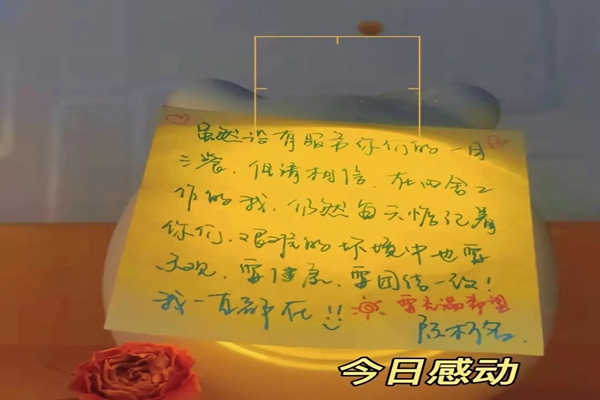 虽然没有服务你们的一日
三餐，但请相信，在四舍工
作的我，仍然每天惦记着
你们，艰难的环境中也要
乐观，要健康，要团结一致！
我一直都在！！要充满希望
今日感动